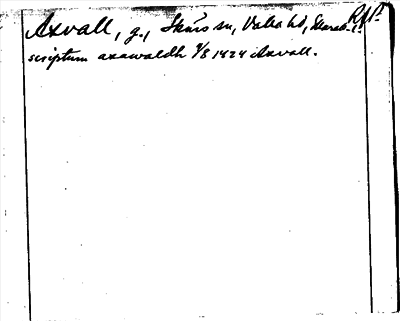 Axvall, g., Skärvs sn, Valla hd, Skarab. l. RAP
scriptum axawaldh 9/8 1424 Axvall.